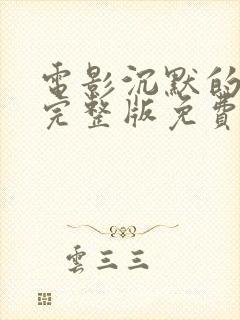 電影沉默的
完整版免費
雲三三